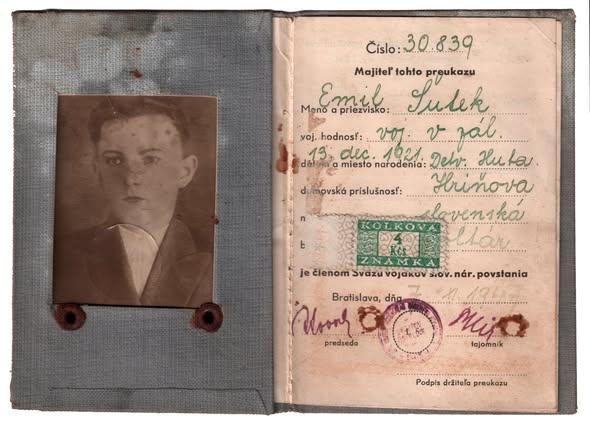 Číslo: 30.839
Majiteľ tohto preukazu
Meno a priezvisko: Emil Sutek
voj. hodnosť: voj. v zál.
13. dec. 1921. Detv. Huta.
dátum a miesto narodenia:
domovská príslušnosť: Hriňova
slovenská
KOLKOVÁ
4
Kčs
ZNÁMKA
je členom Sväzu vojakov slov. nár. povstania
Bratislava, dňa 7. 11.
predseda
tajomník
Podpis držiteľa preukazu